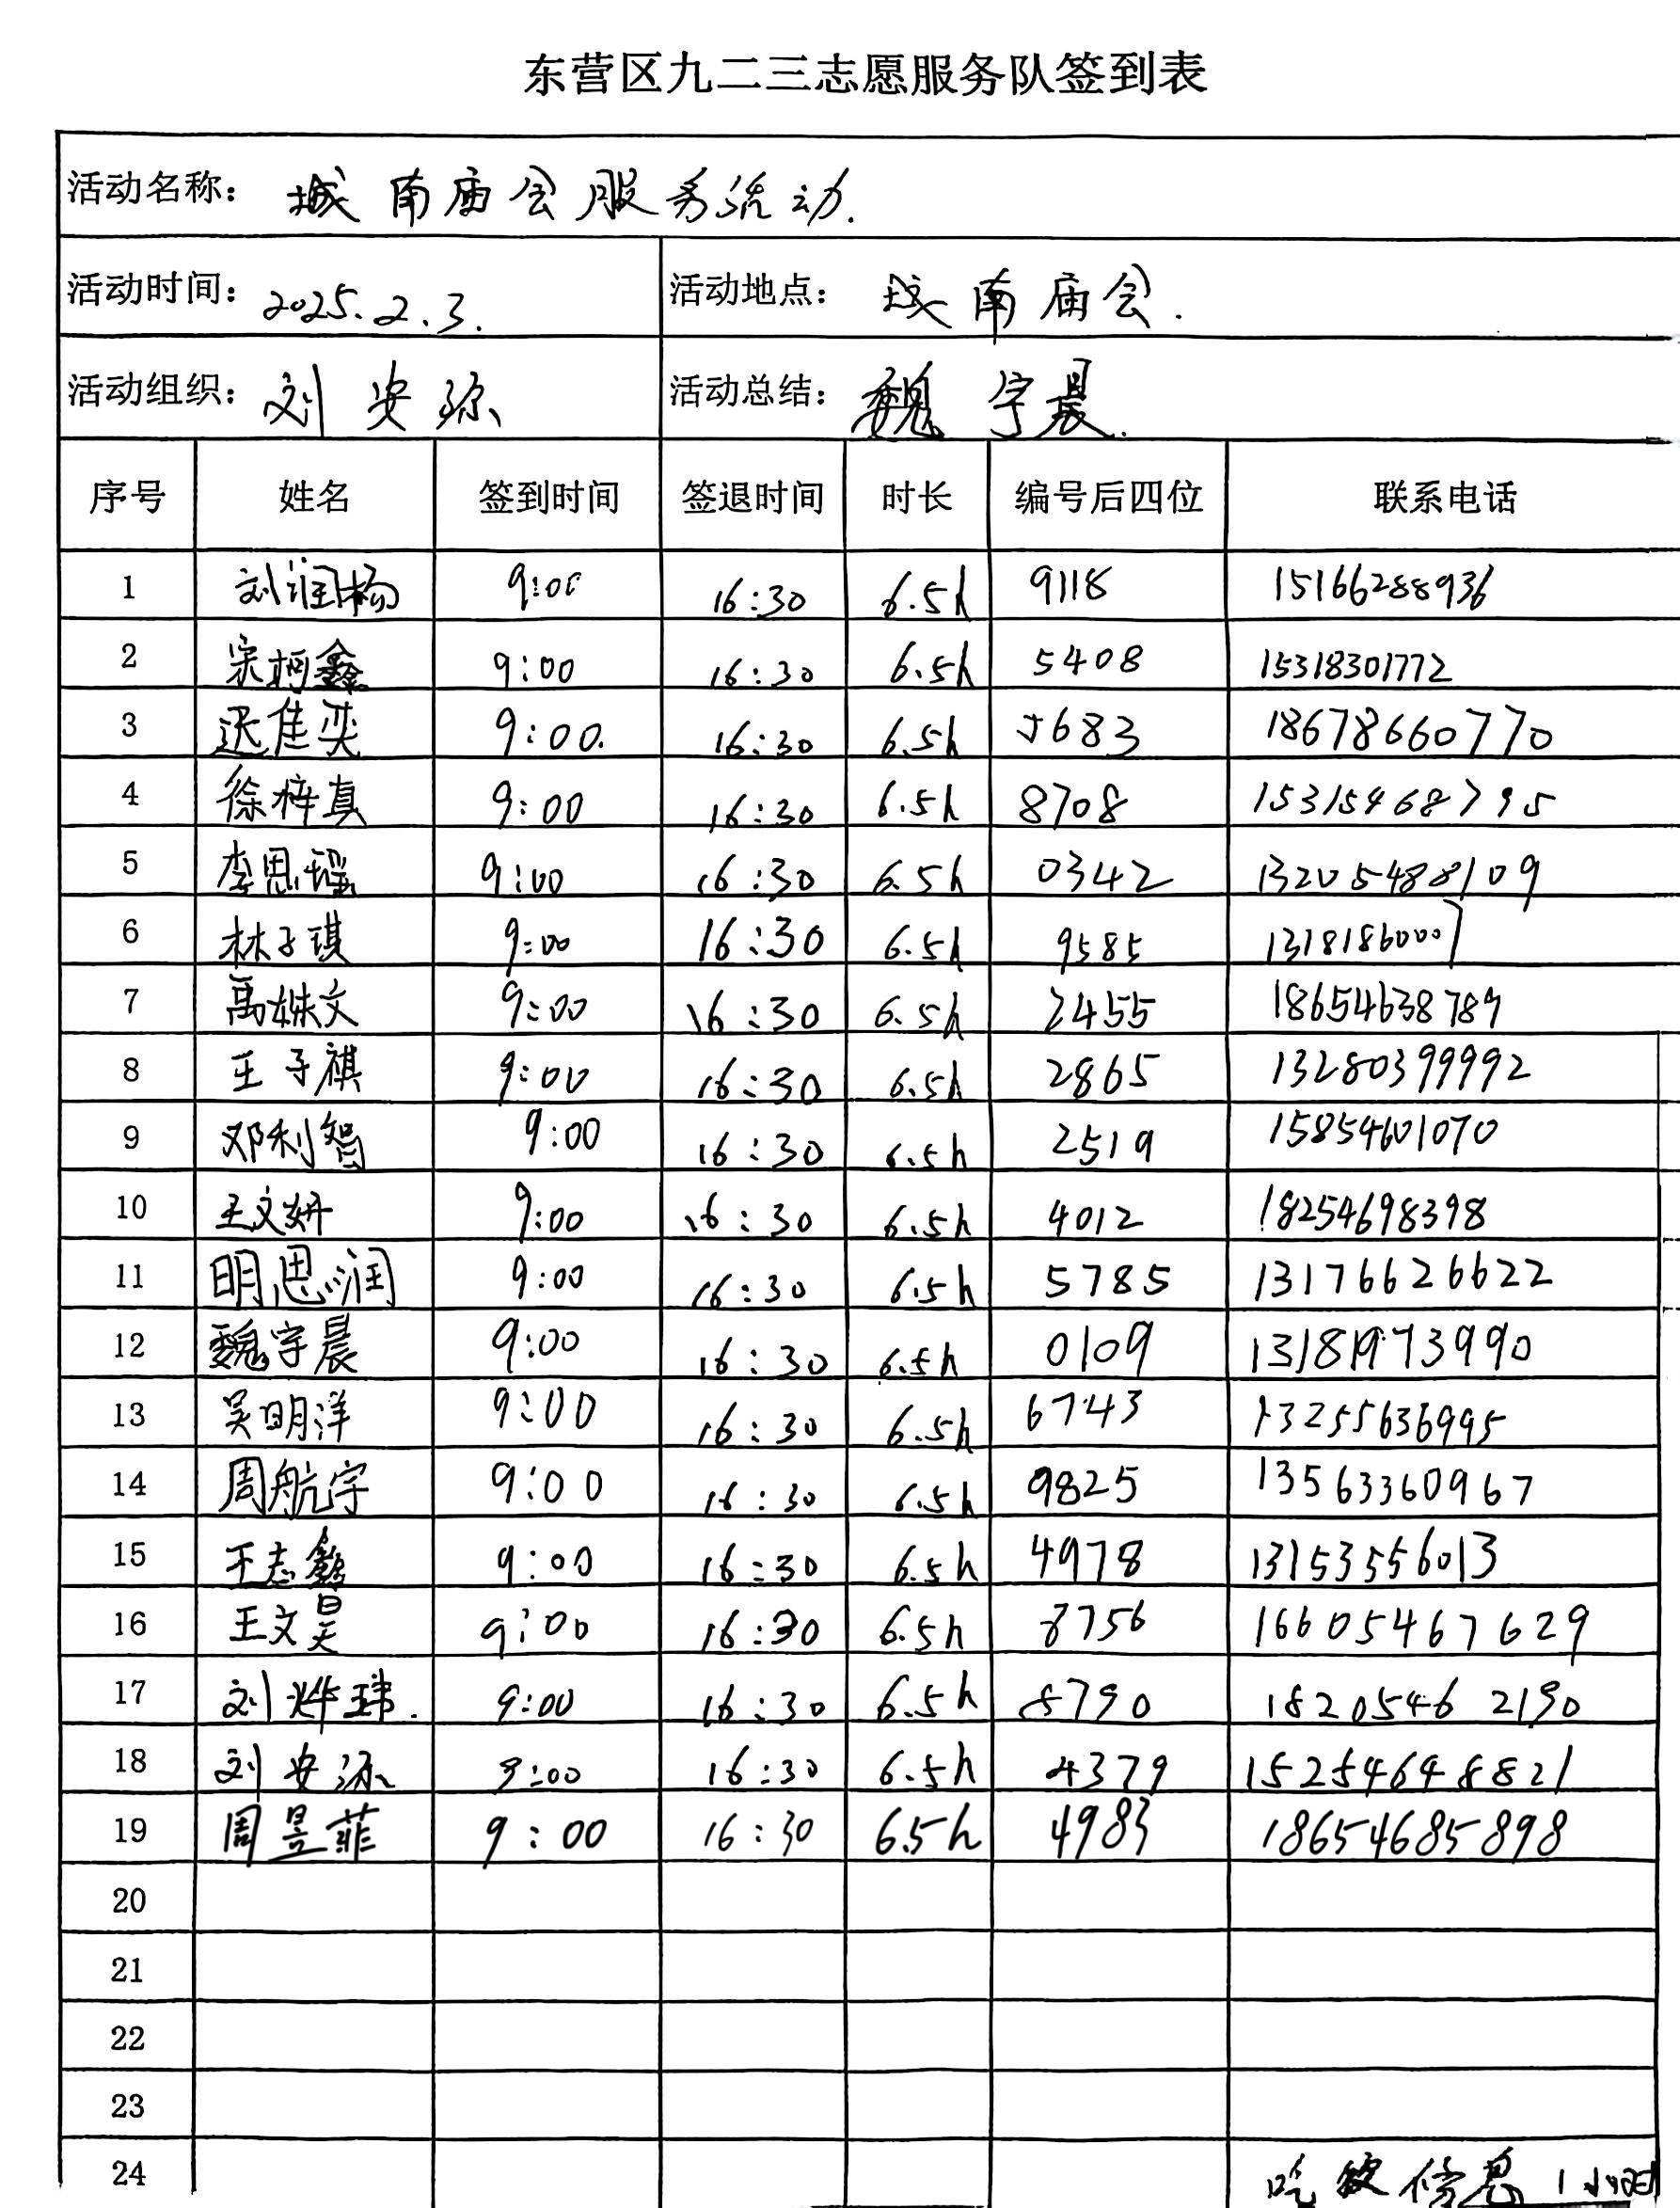 东营区九二三志愿服务队签到表
活动名称: 城南庙会服务流动.
活动时间: 2025.2.3. 活动地点: 城南庙会.
活动组织: 刘安添 活动总结: 魏宇晨.
序号 姓名 签到时间 签退时间 时长 编号后四位 联系电话
1 刘润杨 9:00 16:30 6.5h 9118 15166288936
2 宋柯鑫 9:00 16:30 6.5h 5408 15318301772
3 迟佳奕 9:00. 16:30 6.5h 5683 18678660770
4 徐梓真 9:00 16:30 6.5h 8708 15315468795
5 李思瑶 9:00 16:30 6.5h 0342 13205488109
6 林子琪 9:00 16:30 6.5h 9585 13181860007
7 禹姝文 9:00 16:30 6.5h 2455 18654638789
8 王子祺 9:00 16:30 6.5h 2865 13280399992
9 邓利智 9:00 16:30 6.5h 2519 15854601070
10 王文妍 9:00 16:30 6.5h 4012 18254698398
11 明思润 9:00 16:30 6.5h 5785 13176626622
12 魏宇晨 9:00 16:30 6.5h 0109 13181973990
13 吴明洋 9:00 16:30 6.5h 6743 13255636995
14 周航宇 9:00 16:30 6.5h 9825 13563360967
15 王志鑫 9:00 16:30 6.5h 4978 13153556013
16 王文昊 9:00 16:30 6.5h 8756 16605467629
17 刘烨玮. 9:00 16:30 6.5h 8790 18205462190
18 刘安添 9:00 16:30 6.5h 4379 15254648821
19 周昱菲 9:00 16:30 6.5h 4983 18654685898
20
21
22
23
24 吃饭休息1小时